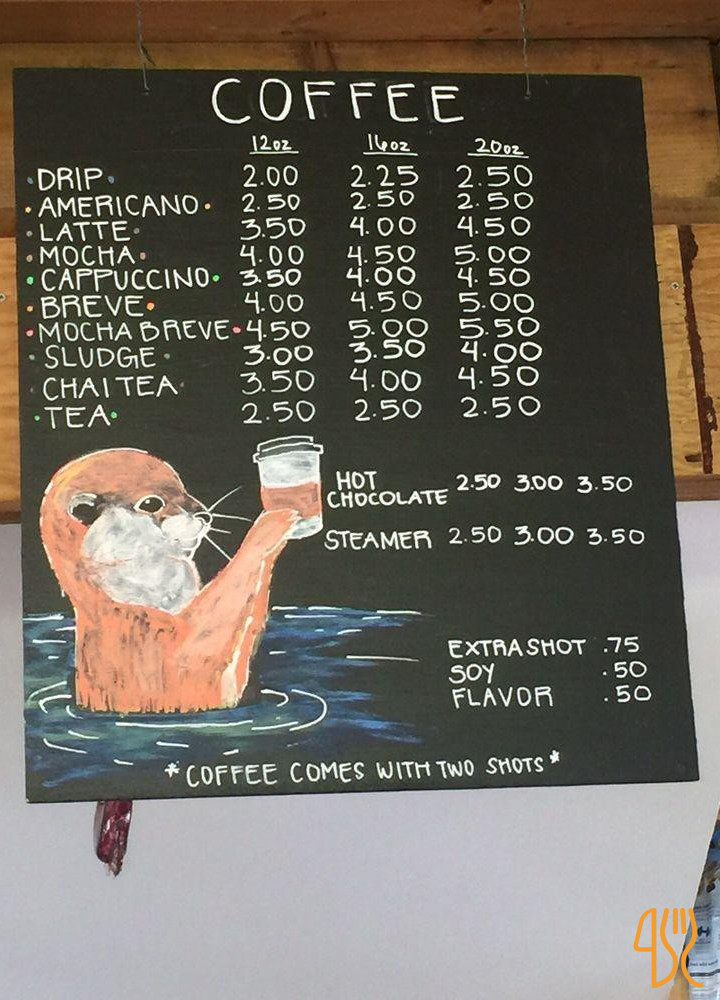 COFFEE
12oz 16oz 20oz
DRIP 2.00 2.25 2.50
AMERICANO 2.50 2.50 2.50
LATTE 3.50 4.00 4.50
MOCHA 4.00 4.50 5.00
CAPPUCCINO 3.50 4.00 4.50
BREVE 4.00 4.50 5.00
MOCHA BREVE 4.50 5.00 5.50
SLUDGE 3.00 3.50 4.00
CHAI TEA 3.50 4.00 4.50
TEA 2.50 2.50 2.50
HOT
CHOCOLATE 2.50 3.00 3.50
STEAMER 2.50 3.00 3.50
EXTRA SHOT .75
SOY .50
FLAVOR .50
*COFFEE COMES WITH TWO SHOTS*